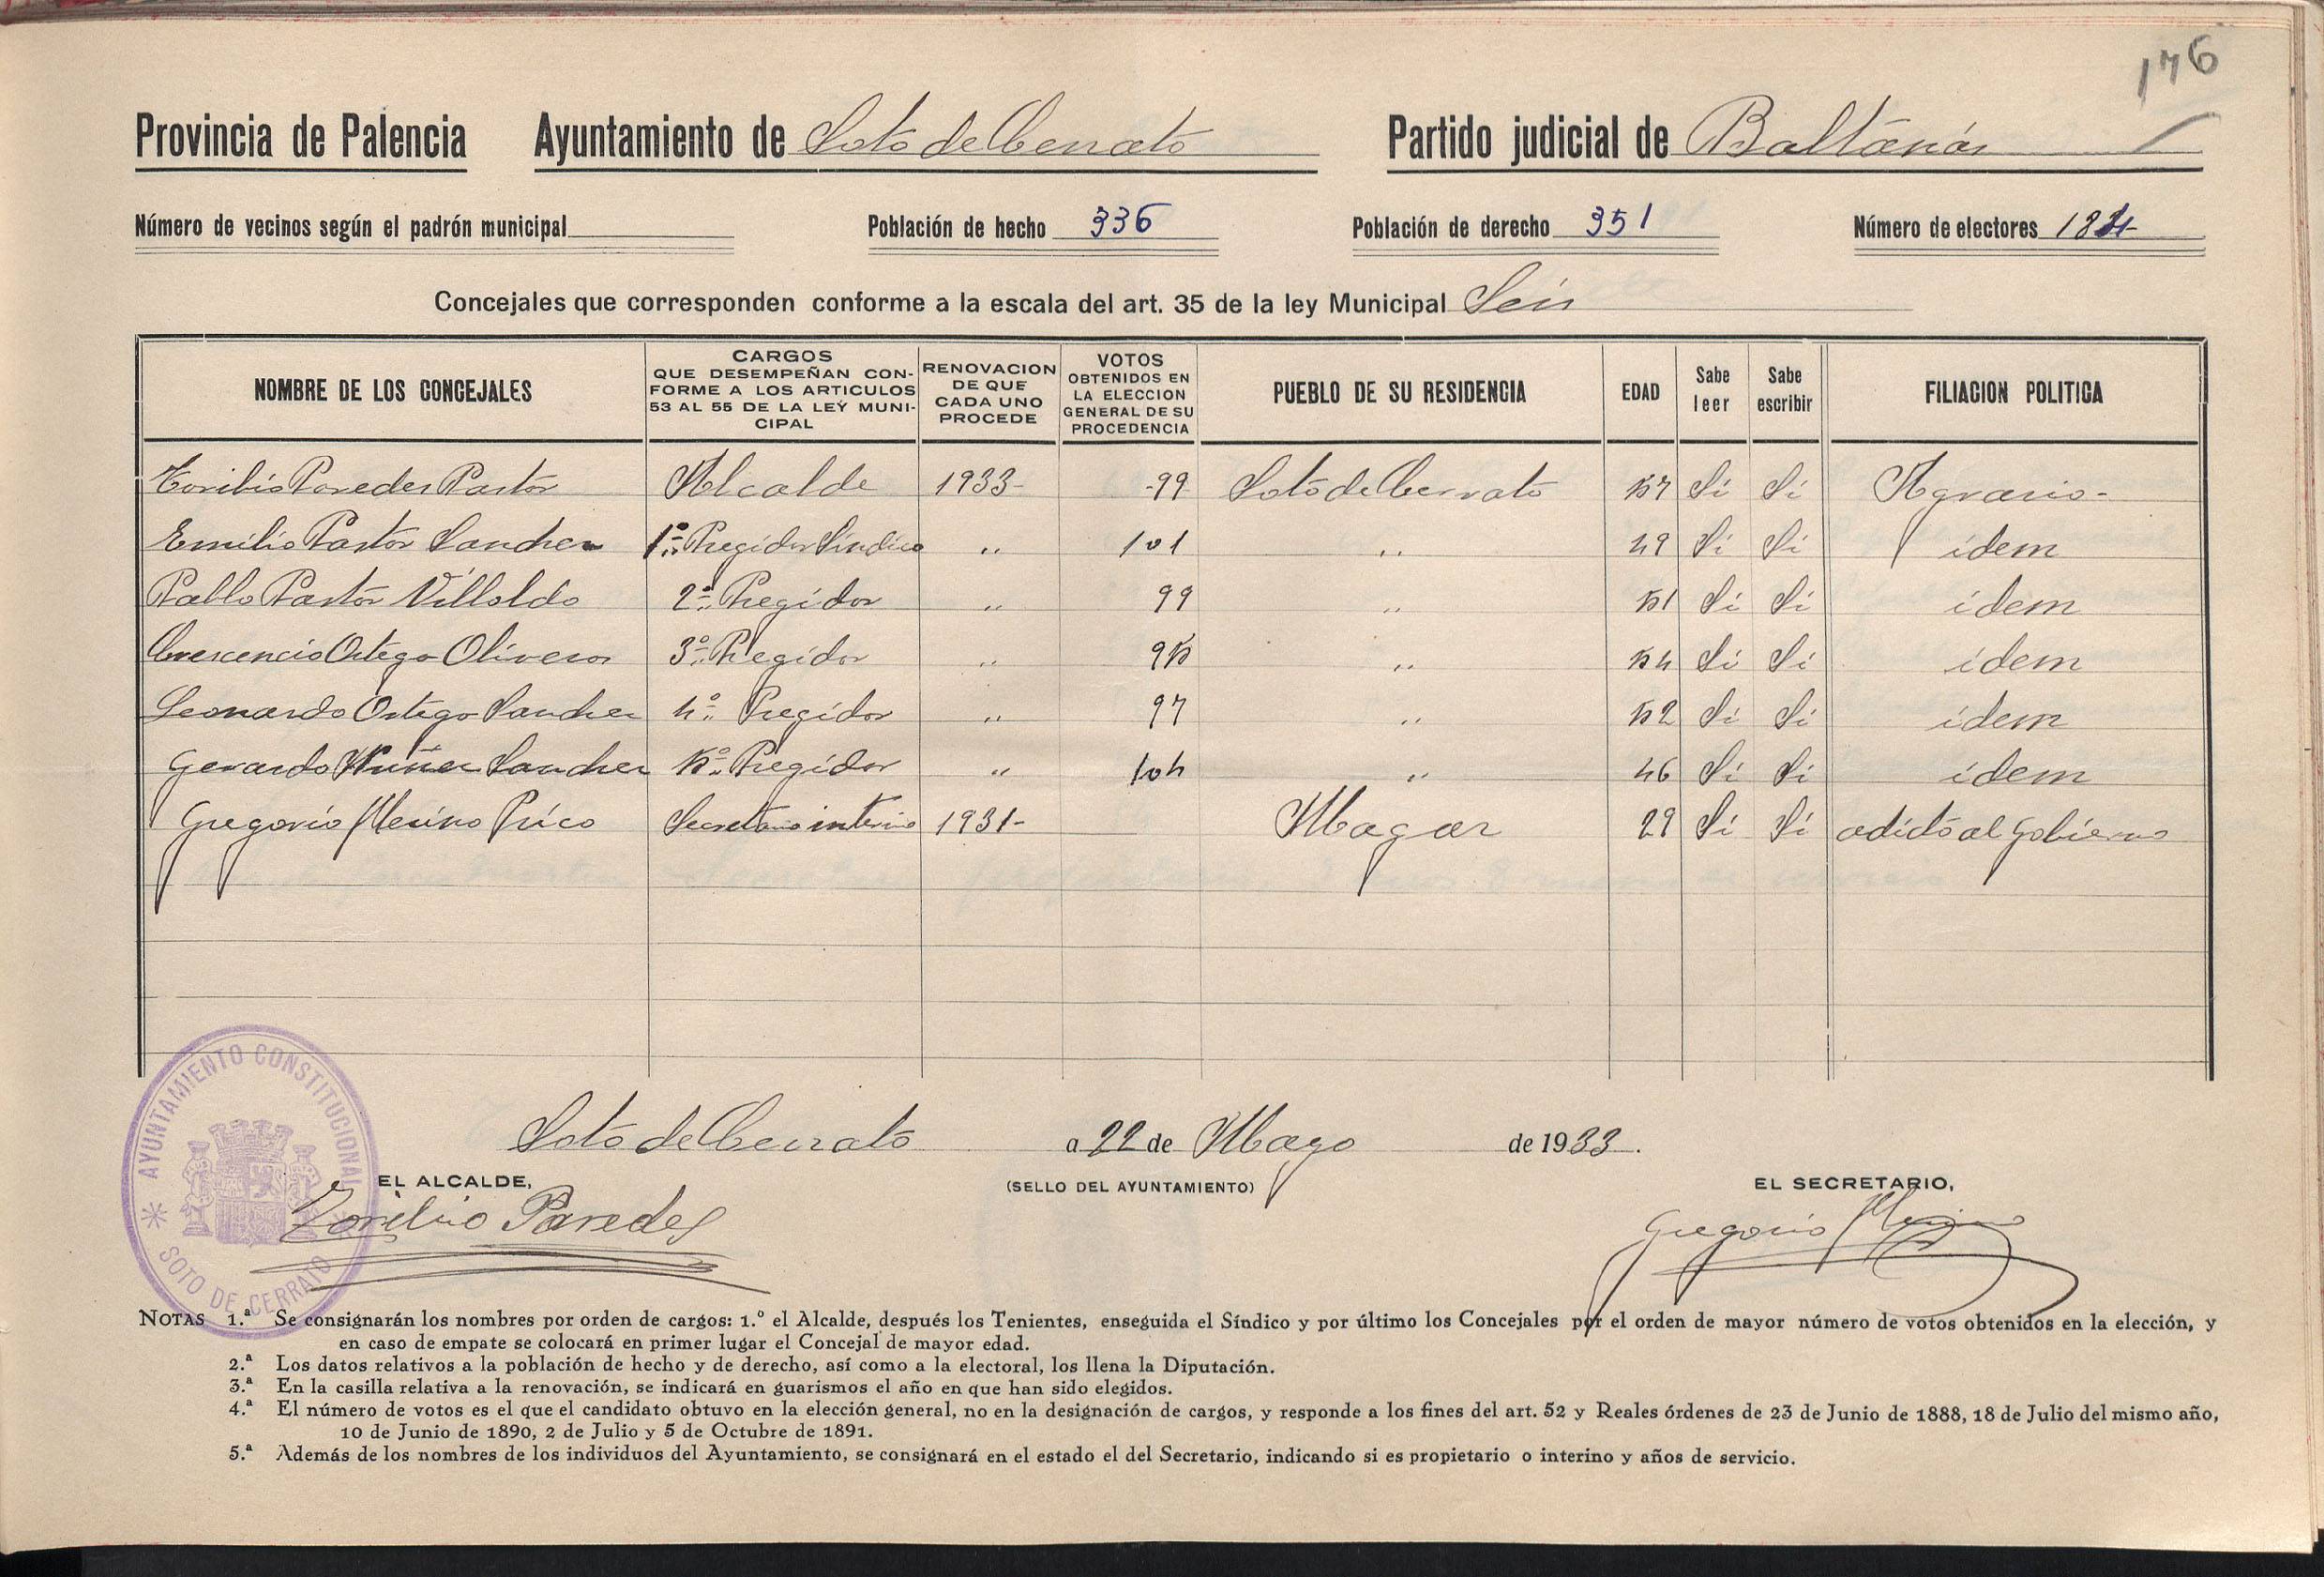 176
Provincia de Palencia Ayuntamiento de Soto de Cerrato Partido judicial de Baltanás
Número de vecinos según el padrón municipal Población de hecho 336 Población de derecho 351 Número de electores
Concejales que corresponden conforme a la escala del art. 35 de la ley Municipal Seis
NOMBRE DE LOS CONCEJALES CARGOS QUE DESEMPEÑAN CONFORME A LOS ARTICULOS 53 AL 55 DE LA LEY MUNICIPAL RENOVACION DE QUE CADA UNO PROCEDE VOTOS OBTENIDOS EN LA ELECCION GENERAL DE SU PROCEDENCIA PUEBLO DE SU RESIDENCIA EDAD Sabe leer Sabe escribir FILIACION POLITICA
Toribio Paredes Pastor Alcalde 1933- -99- Soto de Cerrato 57 Sí Sí Agrario-
Emilio Pastor Sanchez 1º Regidor Síndico " 101 " 49 Sí Sí idem
Pablo Pastor Villoldo 2º Regidor " 99 " 51 Sí Sí idem
Crescencio Ortega Oliveros 3º Regidor " 95 " 54 Sí Sí idem
Leonardo Ortega Sanchez 4º Regidor " 97 " 52 Sí Sí idem
Gerardo Nuñez Sanchez 5º Regidor " 104 " 46 Sí Sí idem
Gregorio Merino Prico Secretario interino 1931- Magaz 29 Sí Sí adicto al Gobierno
AYUNTAMIENTO CONSTITUCIONAL
SOTO DE CERRATO
Soto de Cerrato a 22 de Mayo de 1933.
EL ALCALDE, (SELLO DEL AYUNTAMIENTO) EL SECRETARIO,
Toribio Paredes Gregorio Merino
NOTAS 1.ª Se consignarán los nombres por orden de cargos: 1.º el Alcalde, después los Tenientes, enseguida el Síndico y por último los Concejales por el orden de mayor número de votos obtenidos en la elección, y
en caso de empate se colocará en primer lugar el Concejal de mayor edad.
2.ª Los datos relativos a la población de hecho y de derecho, así como a la electoral, los llena la Diputación.
3.ª En la casilla relativa a la renovación, se indicará en guarismos el año en que han sido elegidos.
4.ª El número de votos es el que el candidato obtuvo en la elección general, no en la designación de cargos, y responde a los fines del art. 52 y Reales órdenes de 23 de Junio de 1888, 18 de Julio del mismo año,
10 de Junio de 1890, 2 de Julio y 5 de Octubre de 1891.
5.ª Además de los nombres de los individuos del Ayuntamiento, se consignará en el estado el del Secretario, indicando si es propietario o interino y años de servicio.